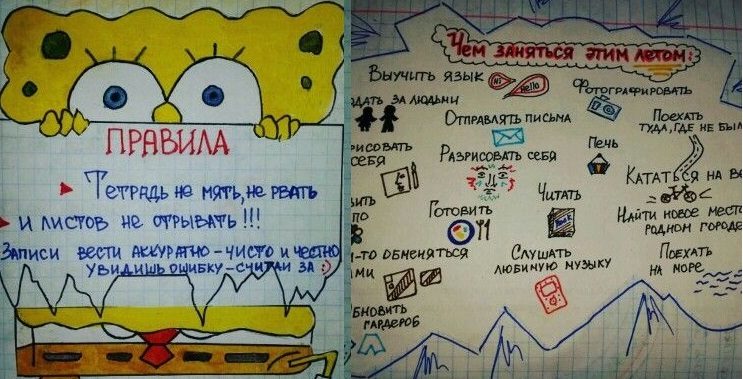 ПРАВИЛА
Тетрадь не мять, не рвать
и листов не отрывать !!!
Записи вести аккуратно - чисто и честно
увидишь ошибку - считай за :)
Чем заняться этим летом:
Выучить язык
Hi
Hello
Фотографировать
за людьми
Отправлять письма
Поехать
туда, где не был
Печь
себя
Разрисовать себя
Кататься на
Читать
Book
Готовить
по
Найти новое
родном городе
-то обменяться
ми
Слушать
любимую музыку
Поехать
на море
гардероб